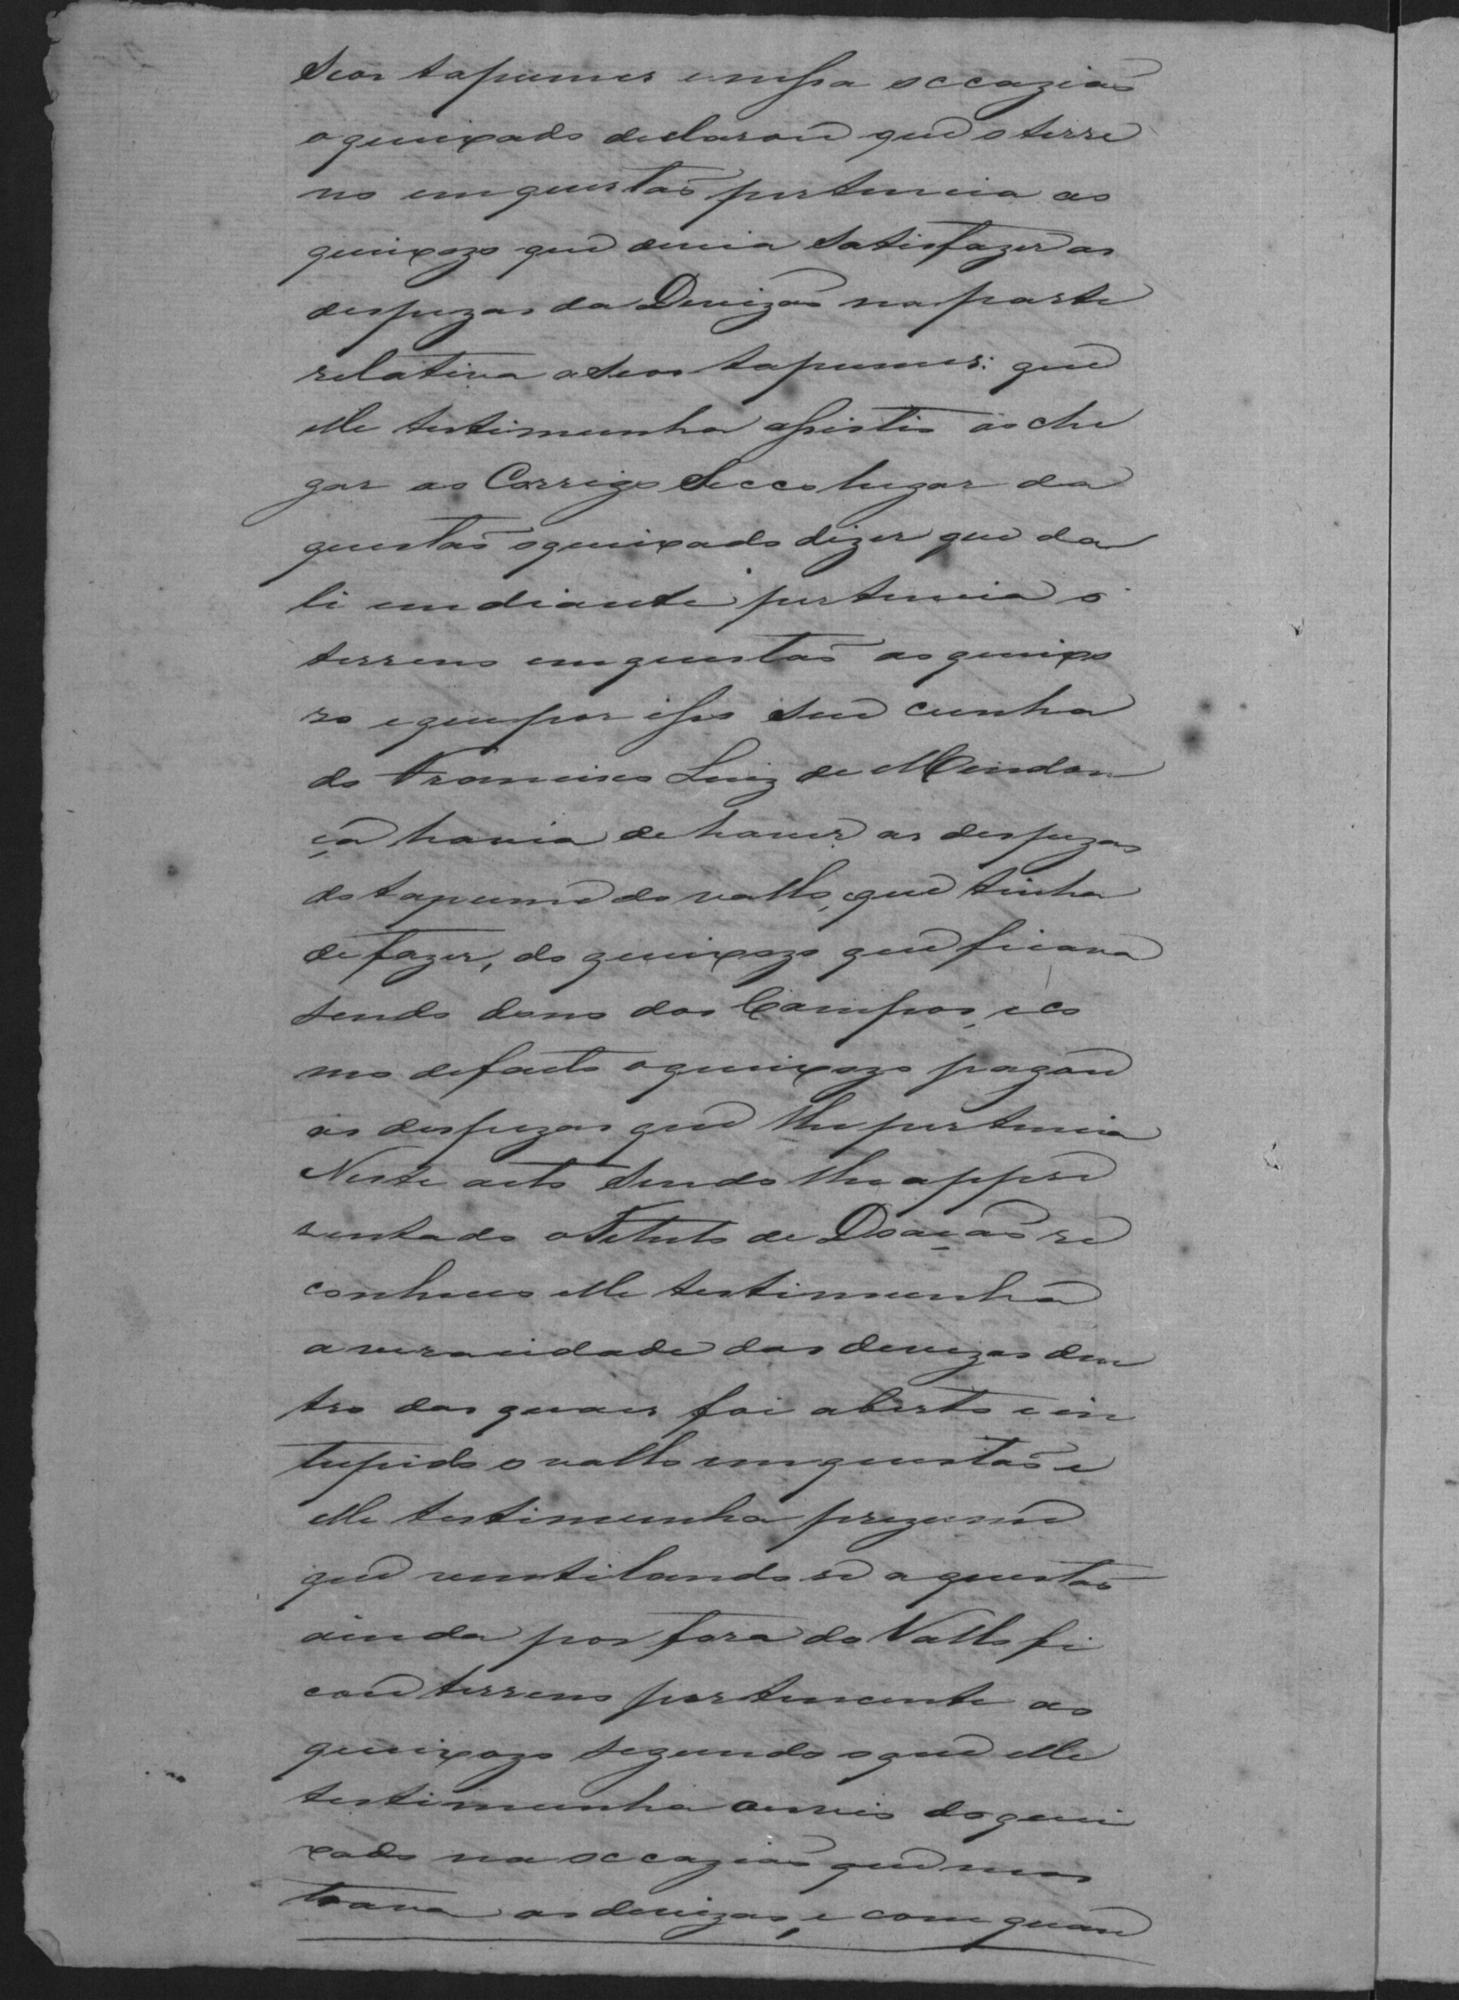 seos tapumes e nessa occazião
o queixado declarou que o terre
no em questão pertencia ao
queixozo que devia satisfazer as
despezas da Devizão na parte
relativa a seos tapumes: que
elle testimunha assistio ao che
gar ao Corrigo Secco lugar da
questão o queixado dizer que da
li em diante pertencia o
terreno em questão ao queixo
zo e que por isso seu cunha
do Francisco Luiz de Mendon
ça havia de haver as despezas
do tapume do vallo, que tinha
de fazer, do queixozo que ficava
sendo dono dos Campos, e co
mo de facto o queixozo pagou
as despezas que lhe pertencia
Neste acto sendo lhe appre
sentado o Titulo de Doação re
conheceo elle testimunha
a veracidade das devizas den
tro das quaes foi aberto e in
tupido o vallo em questão e
elle testimunha prezume
que ventilando se a questão
ainda por fora do Vallo fi
cou terreno pertencente ao
queixozo segundo o que elle
testimunha ouvio do quei
xado na occazião que mos
trava as devizas, e com quan